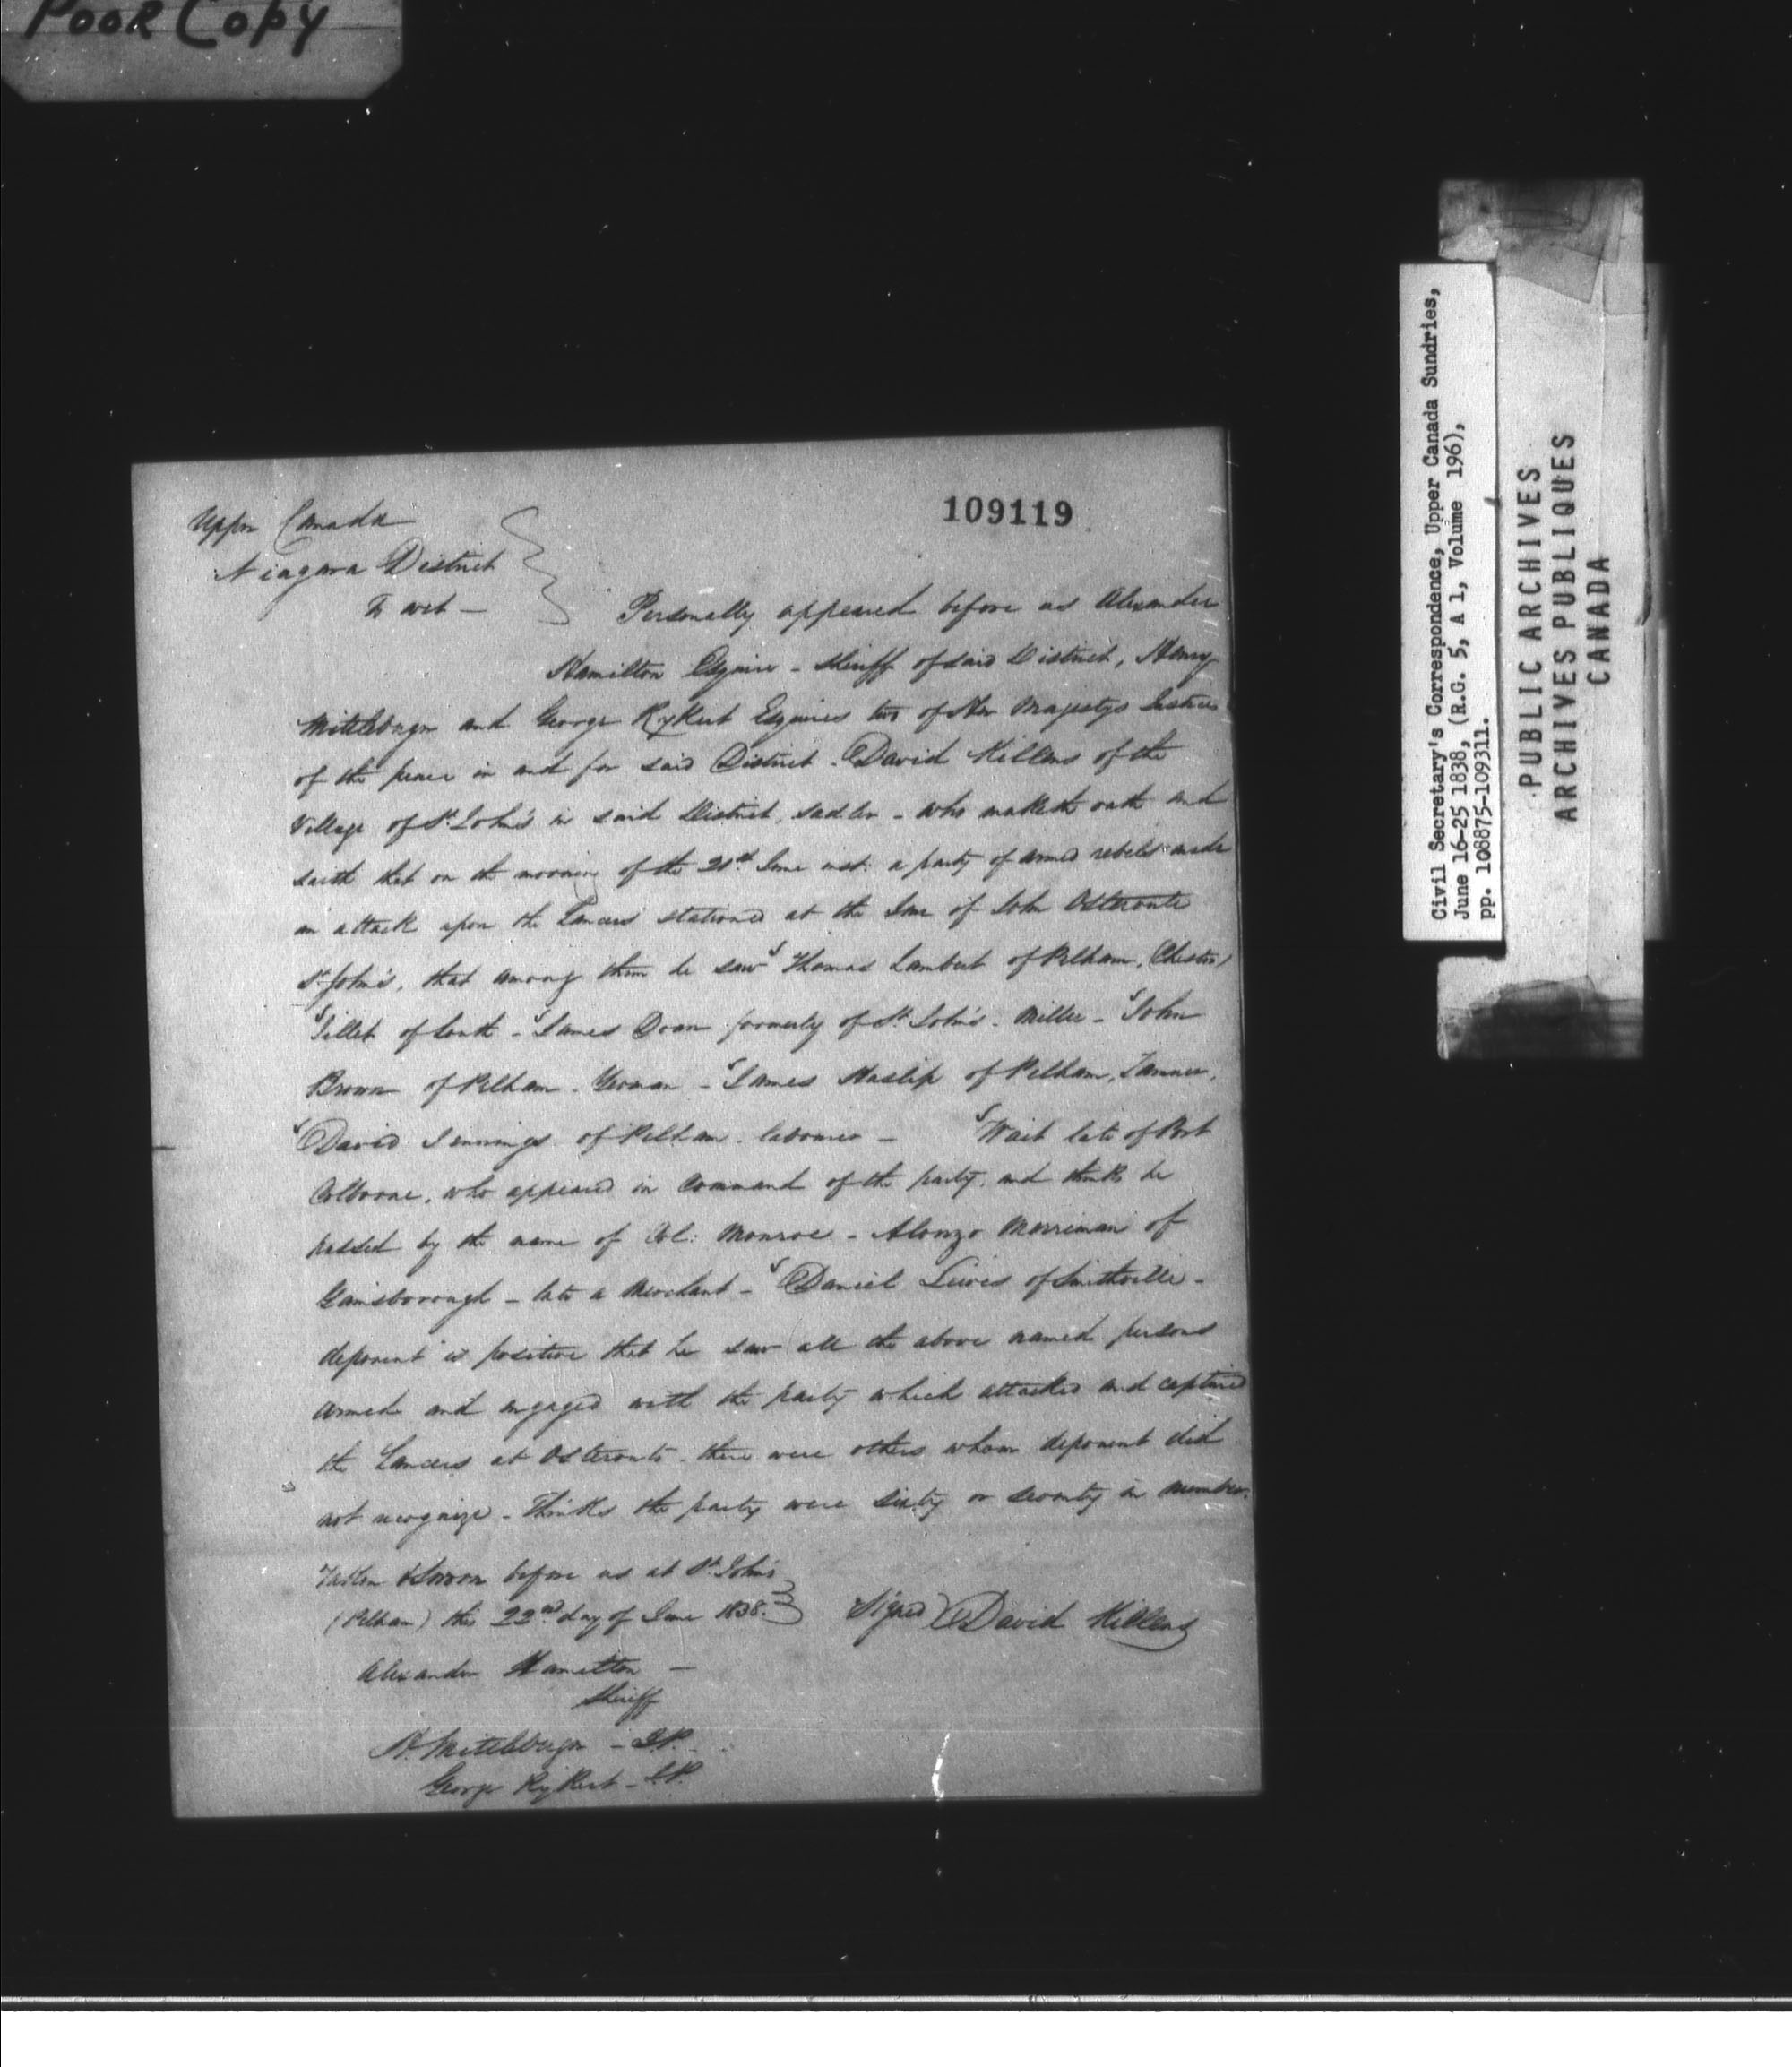 Poor Copy
109119
Upper Canada
Niagara District
To wit —
Personally appeared before us Alexander
Hamilton Esquire - Sheriff of said District, Henry
Mittleberger and George Rykert Esquires two of Her Majestys Justices
of the peace in and for said District. David Killens of the
Village of St. John's in said District, Sadler - who maketh oath and
saith that on the morning of the 21st June inst: a party of armed rebels made
an attack upon the Lancers stationed at the Inn of John Osteronte
St John's, that among them he saw Thomas Lambert of Pelham, Chester
Gillet of South - James Doan formerly of St. John's. Miller - John
Brown of Pelham. Yeoman - James Haslip of Pelham, Tanner,
David Jennings of Pelham. labourer - Wait late of Port
Colborne, who appeared in Command of the party, and thinks he
passed by the name of Col: Monroe - Alonzo Merriman of
Gainsborough - late a Merchant - Daniel Lewis of Smithville -
deponent is positive that he saw all the above named persons
armed and engaged with the party which attacked and captured
the Lancers at Osteronts. there were others whom deponent did
not recognize - Thinks the party were sixty or seventy in number.
Taken & Sworn before us at St. John's
(Pelham) the 22nd day of June 1838.
Signed) David Killens
Alexander Hamilton —
Sheriff
H. Mittleberger - J.P.
George Rykert - J.P.
Civil Secretary's Correspondence, Upper Canada Sundries,
June 16-25 1838, (R.G. 5, A 1, Volume 196),
pp. 108875-109311.
PUBLIC ARCHIVES
ARCHIVES PUBLIQUES
CANADA